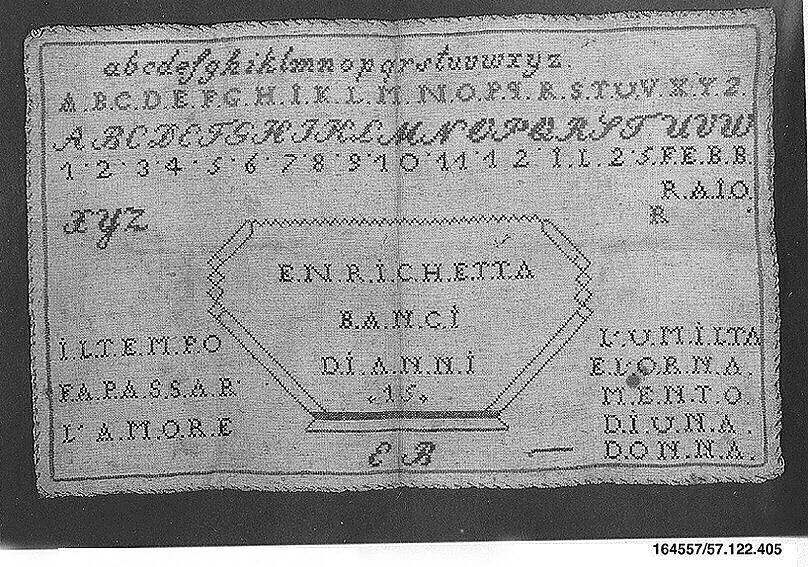 abcdefghiklmnopqrstuvwxyz.
A.B.C.D.E.F.G.H.I.K.L.M.N.O.P.Q.R.S.T.U.V.X.Y.Z
ABCDEFGHIKLMNOPQRSTUVW
1.2.3.4.5.6.7.8.9.10.11.12.I.L.25.F.E.B.B.
R.A.I.O.
R
XYZ
E.N.R.I.C.H.E.T.T.A
B.A.N.C.I
D.I.A.N.N.I
.15.
I.L.T.E.M.P.O
F.A.P.A.S.S.A.R
L'A.M.O.R.E
L'U.M.I.L.T.A
E.L'O.R.N.A.
M.E.N.T.O.
D.I.U.N.A.
D.O.N.N.A.
E B
164557/57.122.405